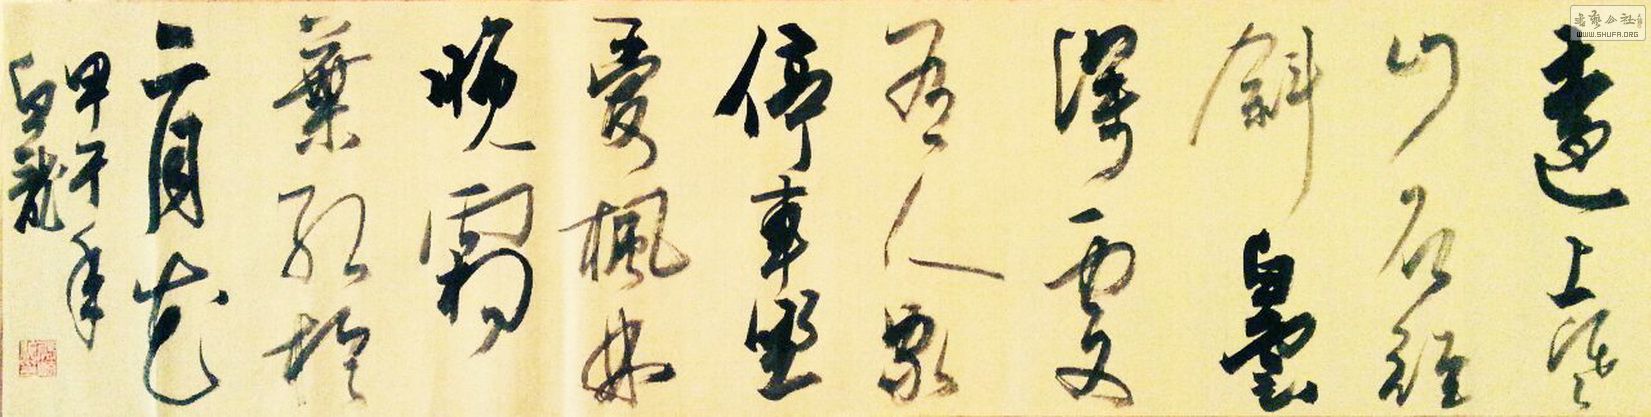 遠上寒
山石徑
斜白雲
深處
有人家
停車坐
愛楓林
晚霜
葉紅於
二月花
甲午年
白龍
書藝公社
WWW.SHUFA.ORG